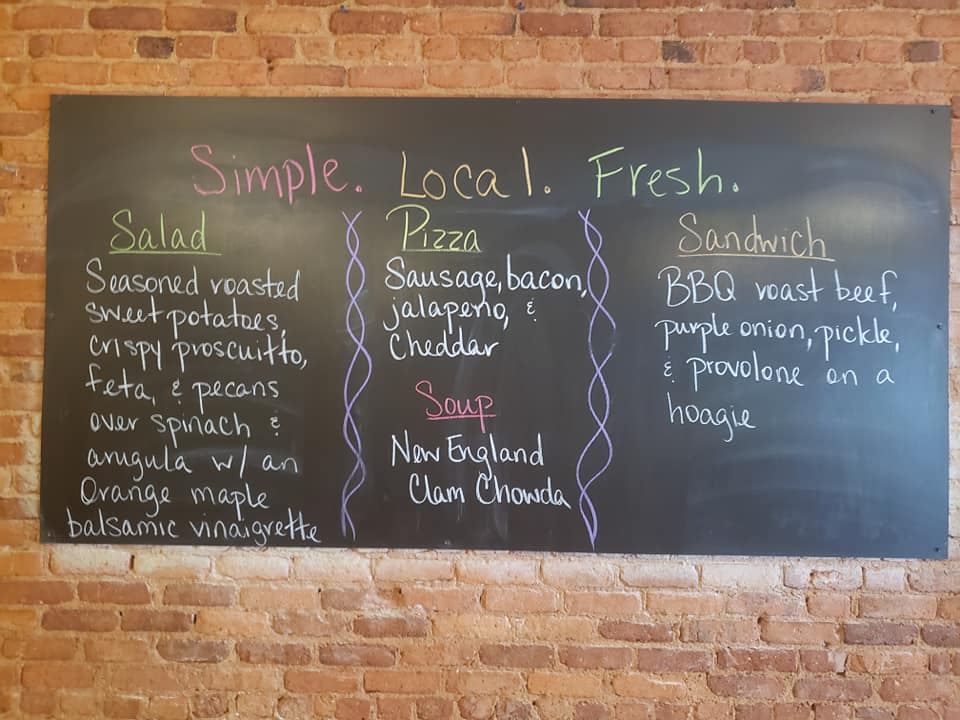 Simple. Local. Fresh.
Salad
Seasoned roasted
sweet potatoes,
crispy proscuitto,
feta, & pecans
over spinach &
arugula w/ an
Orange maple
balsamic vinaigrette
Pizza
Sausage, bacon,
jalapeño, &
Cheddar
Soup
New England
Clam Chowda
Sandwich
BBQ roast beef,
purple onion, pickle,
& provolone on a
hoagie